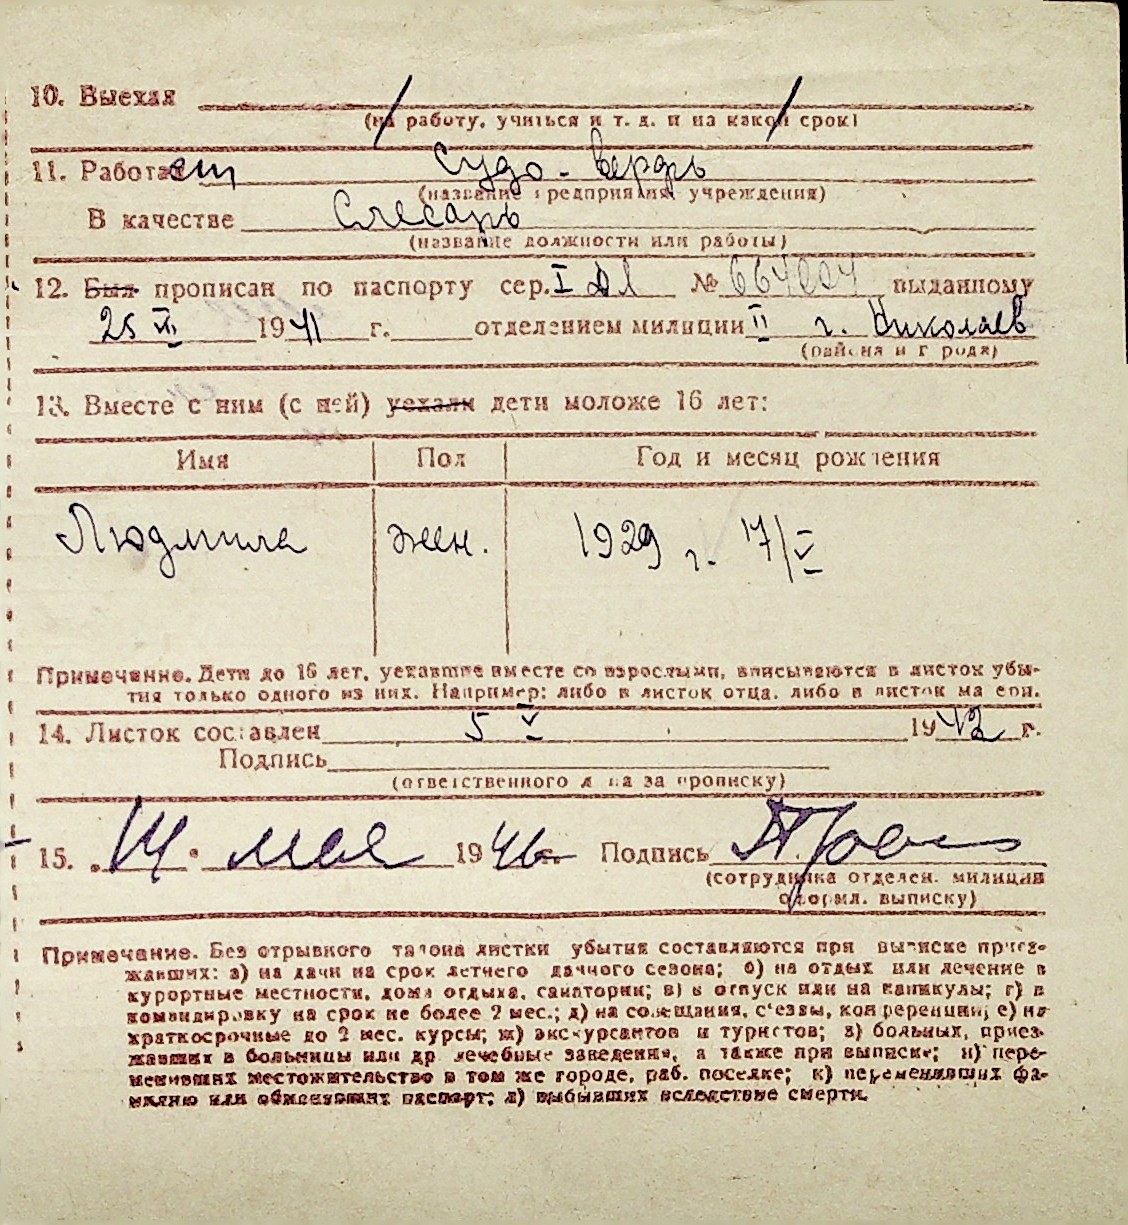 10. Выехал
(на работу, учиться и т. д. и на какой срок)
11. Работает Судо-верфь
(название предприятия, учреждения)
В качестве Слесарь
(название должности или работы)
12. Был прописан по паспорту сер. I ДЛ № выданному
25 XII 1941 г. отделением милиции II г. Николаев
(района и города)
13. Вместе с ним (с ней) уехали дети моложе 16 лет:
Имя Пол Год и месяц рождения
Людмила жен. 1929 г. 17/V
Примечание. Дети до 16 лет, уехавшие вместе со взрослыми, вписываются в листок убы-
тия только одного из них. Например: либо в листок отца, либо в листок матери.
14. Листок составлен 5 V 1942 г.
Подпись
(ответственного лица за прописку)
15. 14 мая 1946 г. Подпись
(сотрудника отделен. милиции
оформл. выписку)
Примечание. Без отрывного талона листки убытия составляются при выписке приез-
жавших: а) на дачи на срок летнего дачного сезона; б) на отдых или лечение в
курортные местности, дома отдыха, санатории; в) в отпуск или на каникулы; г) в
командировку на срок не более 2 мес.; д) на совещания, съезды, конференции; е) на
краткосрочные до 2 мес. курсы; ж) экскурсантов и туристов; з) больных, приез-
жавших в больницы или др. лечебные заведения, а также при выписке; и) пере-
менивших местожительство в том же городе, раб. поселке; к) переменивших фа-
милию или обменявших паспорт; л) выбывших вследствие смерти.